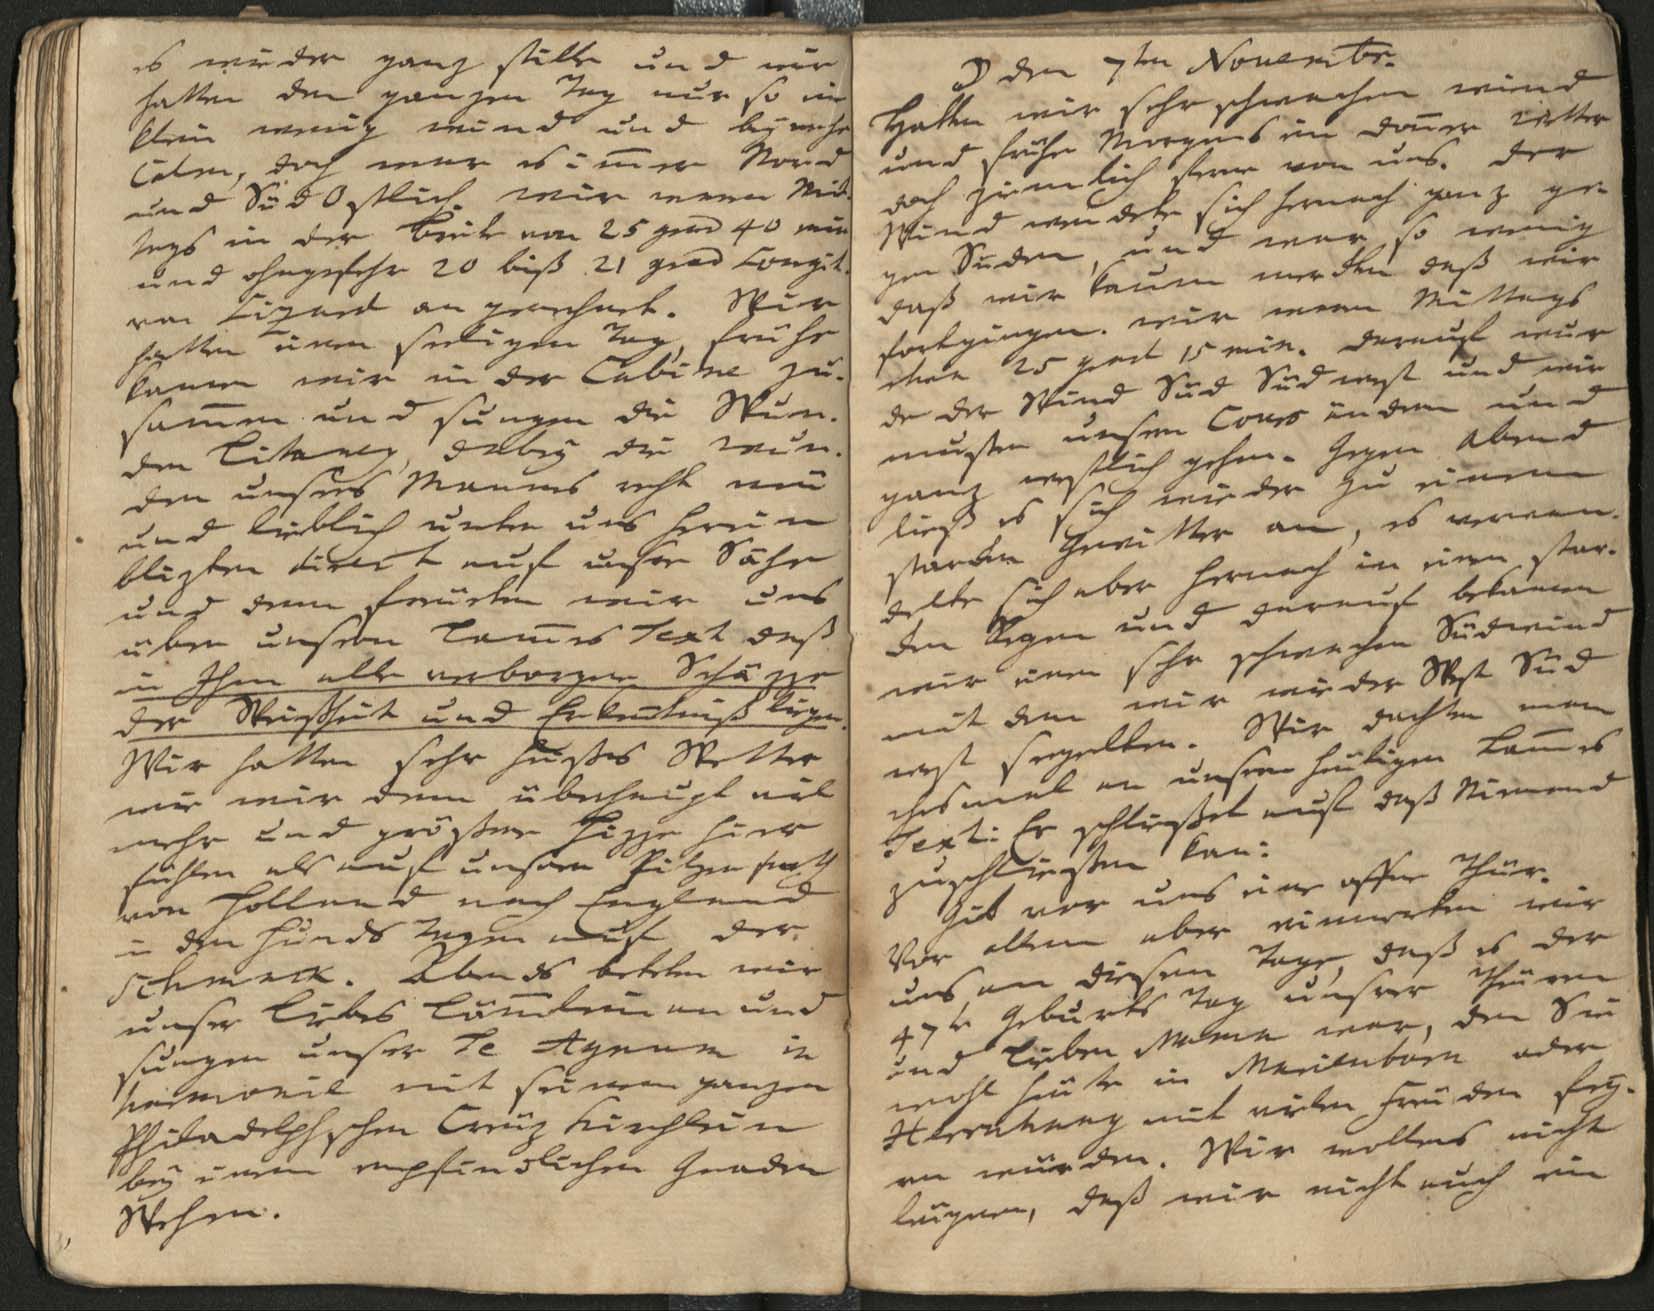 es wieder ganz stille und wir
hatten den ganzen Tag nur so ein
klein wenig wind und beynahe
Calm, doch war es im̄er Nord
und SüdOstlich. wir waren Mit-
tags in der Breite von 25 grad 40 min
und ohngefehr 20 biß 21 grad Longit.
von Lizard an gerechnet. Wir
hatten einen seeligen Tag, frühe
kamen wir in der Cabine zu-
sam̄en und sungen die Wun-
den Litaney, dabey die Wun-
den unsers Mannes recht
und lieblich unter uns herein
blizten direct auf unsre
und dann freueten wir uns
über unsern Lam̄es Text daß
in Ihm alle verborgene Schäzze
der Weißheit und Erkentniß liegen.
Wir hatten sehr heißes Wetter
wie wir denn überhaupt viel
mehr und größere Hizze hier
fühlen als auf unsrer Pilger farth
von Holland nach England
in den Hunds Tagen auf der
Schmack. Abends beteten wir
unser liebes Läm̄lein an und
sungen unser Te Agnum in
harmonie mit seinem ganzen
Philadelphschen Creuz Kirchlein
bey einem empfindlichen Gnaden
Wehen.
☽ den 7ten Novembr.
Hatten wir sehr schwachen wind
und frühe Morgens ein Don̄er wetter
doch ziemlich ferne von uns. der
Wind wendete sich hernach ganz ge-
gen Süden, und war so wenig
daß wir kaum merckten daß wir
fortgingen. wir waren Mittags
25 grad 15 min. darauf wur
de der Wind Süd Südwest und wir
mußten unsern Cours ändern und
ganz westlich gehen. Gegen Abend
ließ es sich wieder zu einem
starcken Gewitter an, es verwan-
delte sich aber hernach in einen star-
cken Regen und darauf bekamen
wir einen sehr schwachen Südwind
mit dem wir wieder West Süd
west seegelten. Wir dachten man
chesmal an unsern heutigen Lam̄es
Text: Er schließet auf daß Niemand
zuschließen kan:
Gib vor uns eine offne Thür.
Vor allem aber erinnerten wir
uns an diesem Tage, daß es der
47te Geburts Tag unsrer Theuren
und Lieben Mama war, den Sie
wohl heute in Marienborn oder
Herrnhaag mit vielen Freuden fey-
ren würden. Wir wollens nicht
leugnen, daß wir nicht auch ein